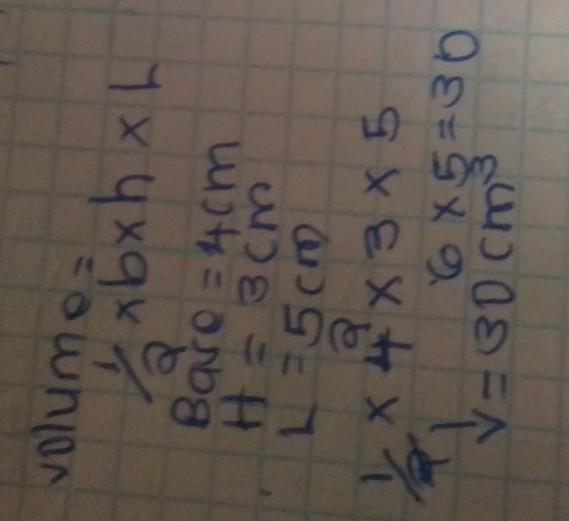 Volume=
1/2 x b x h x L
Base = 4cm
H = 3cm
L = 5cm
1/2 x 4 2 x 3 x 5
1 6 x 5 = 30
V = 30cm³